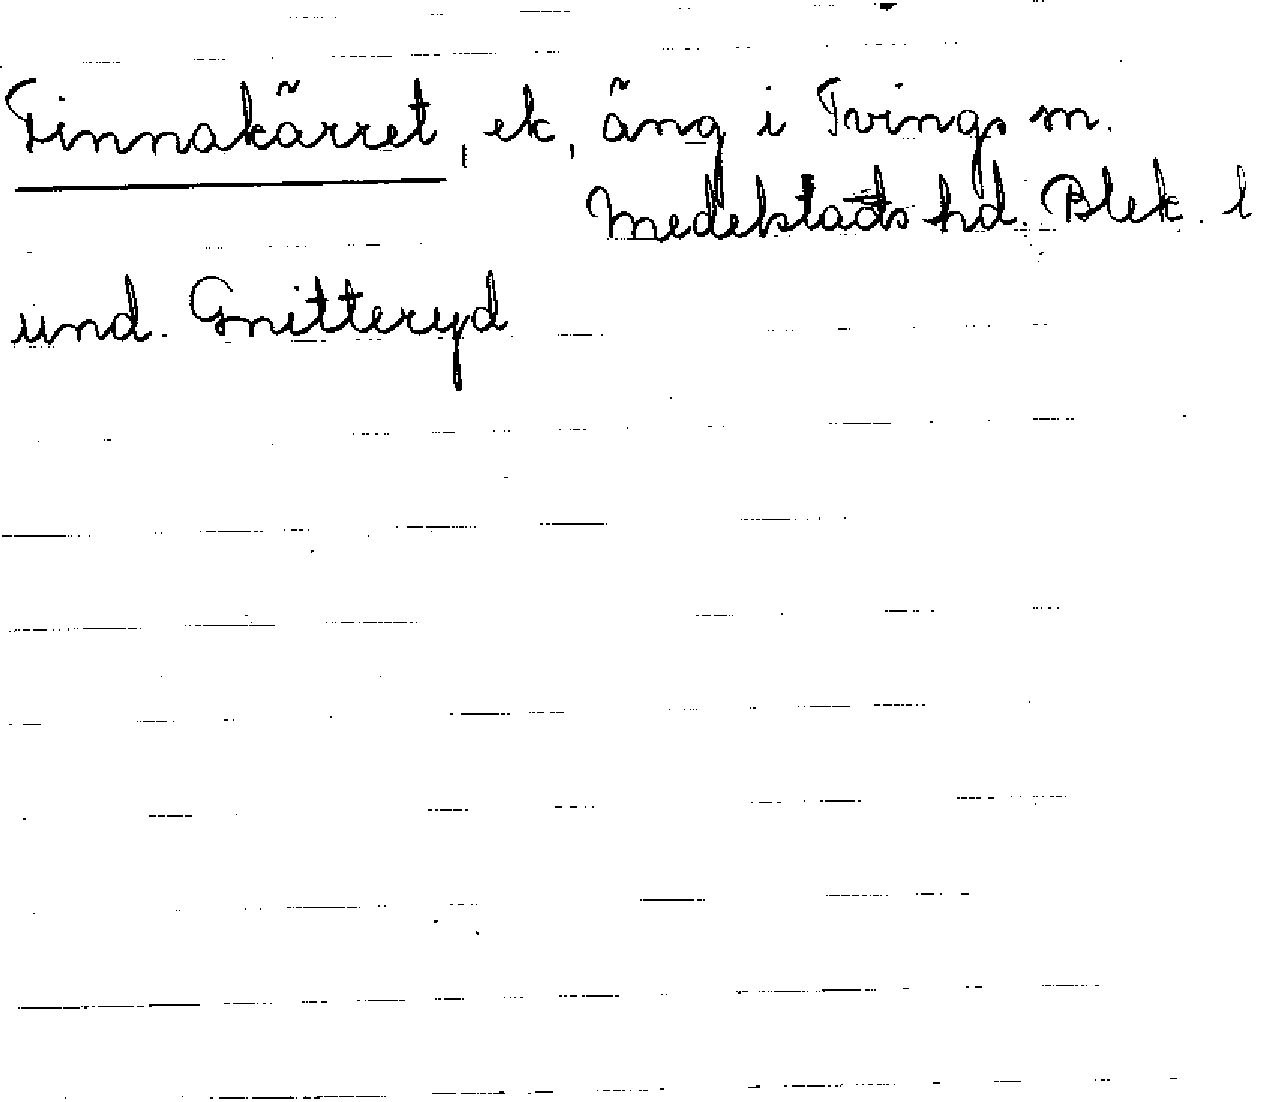 Finnakärret, ek, äng i Tvings sn.
Medelstads hd. Blek. l
und. Gnitteryd